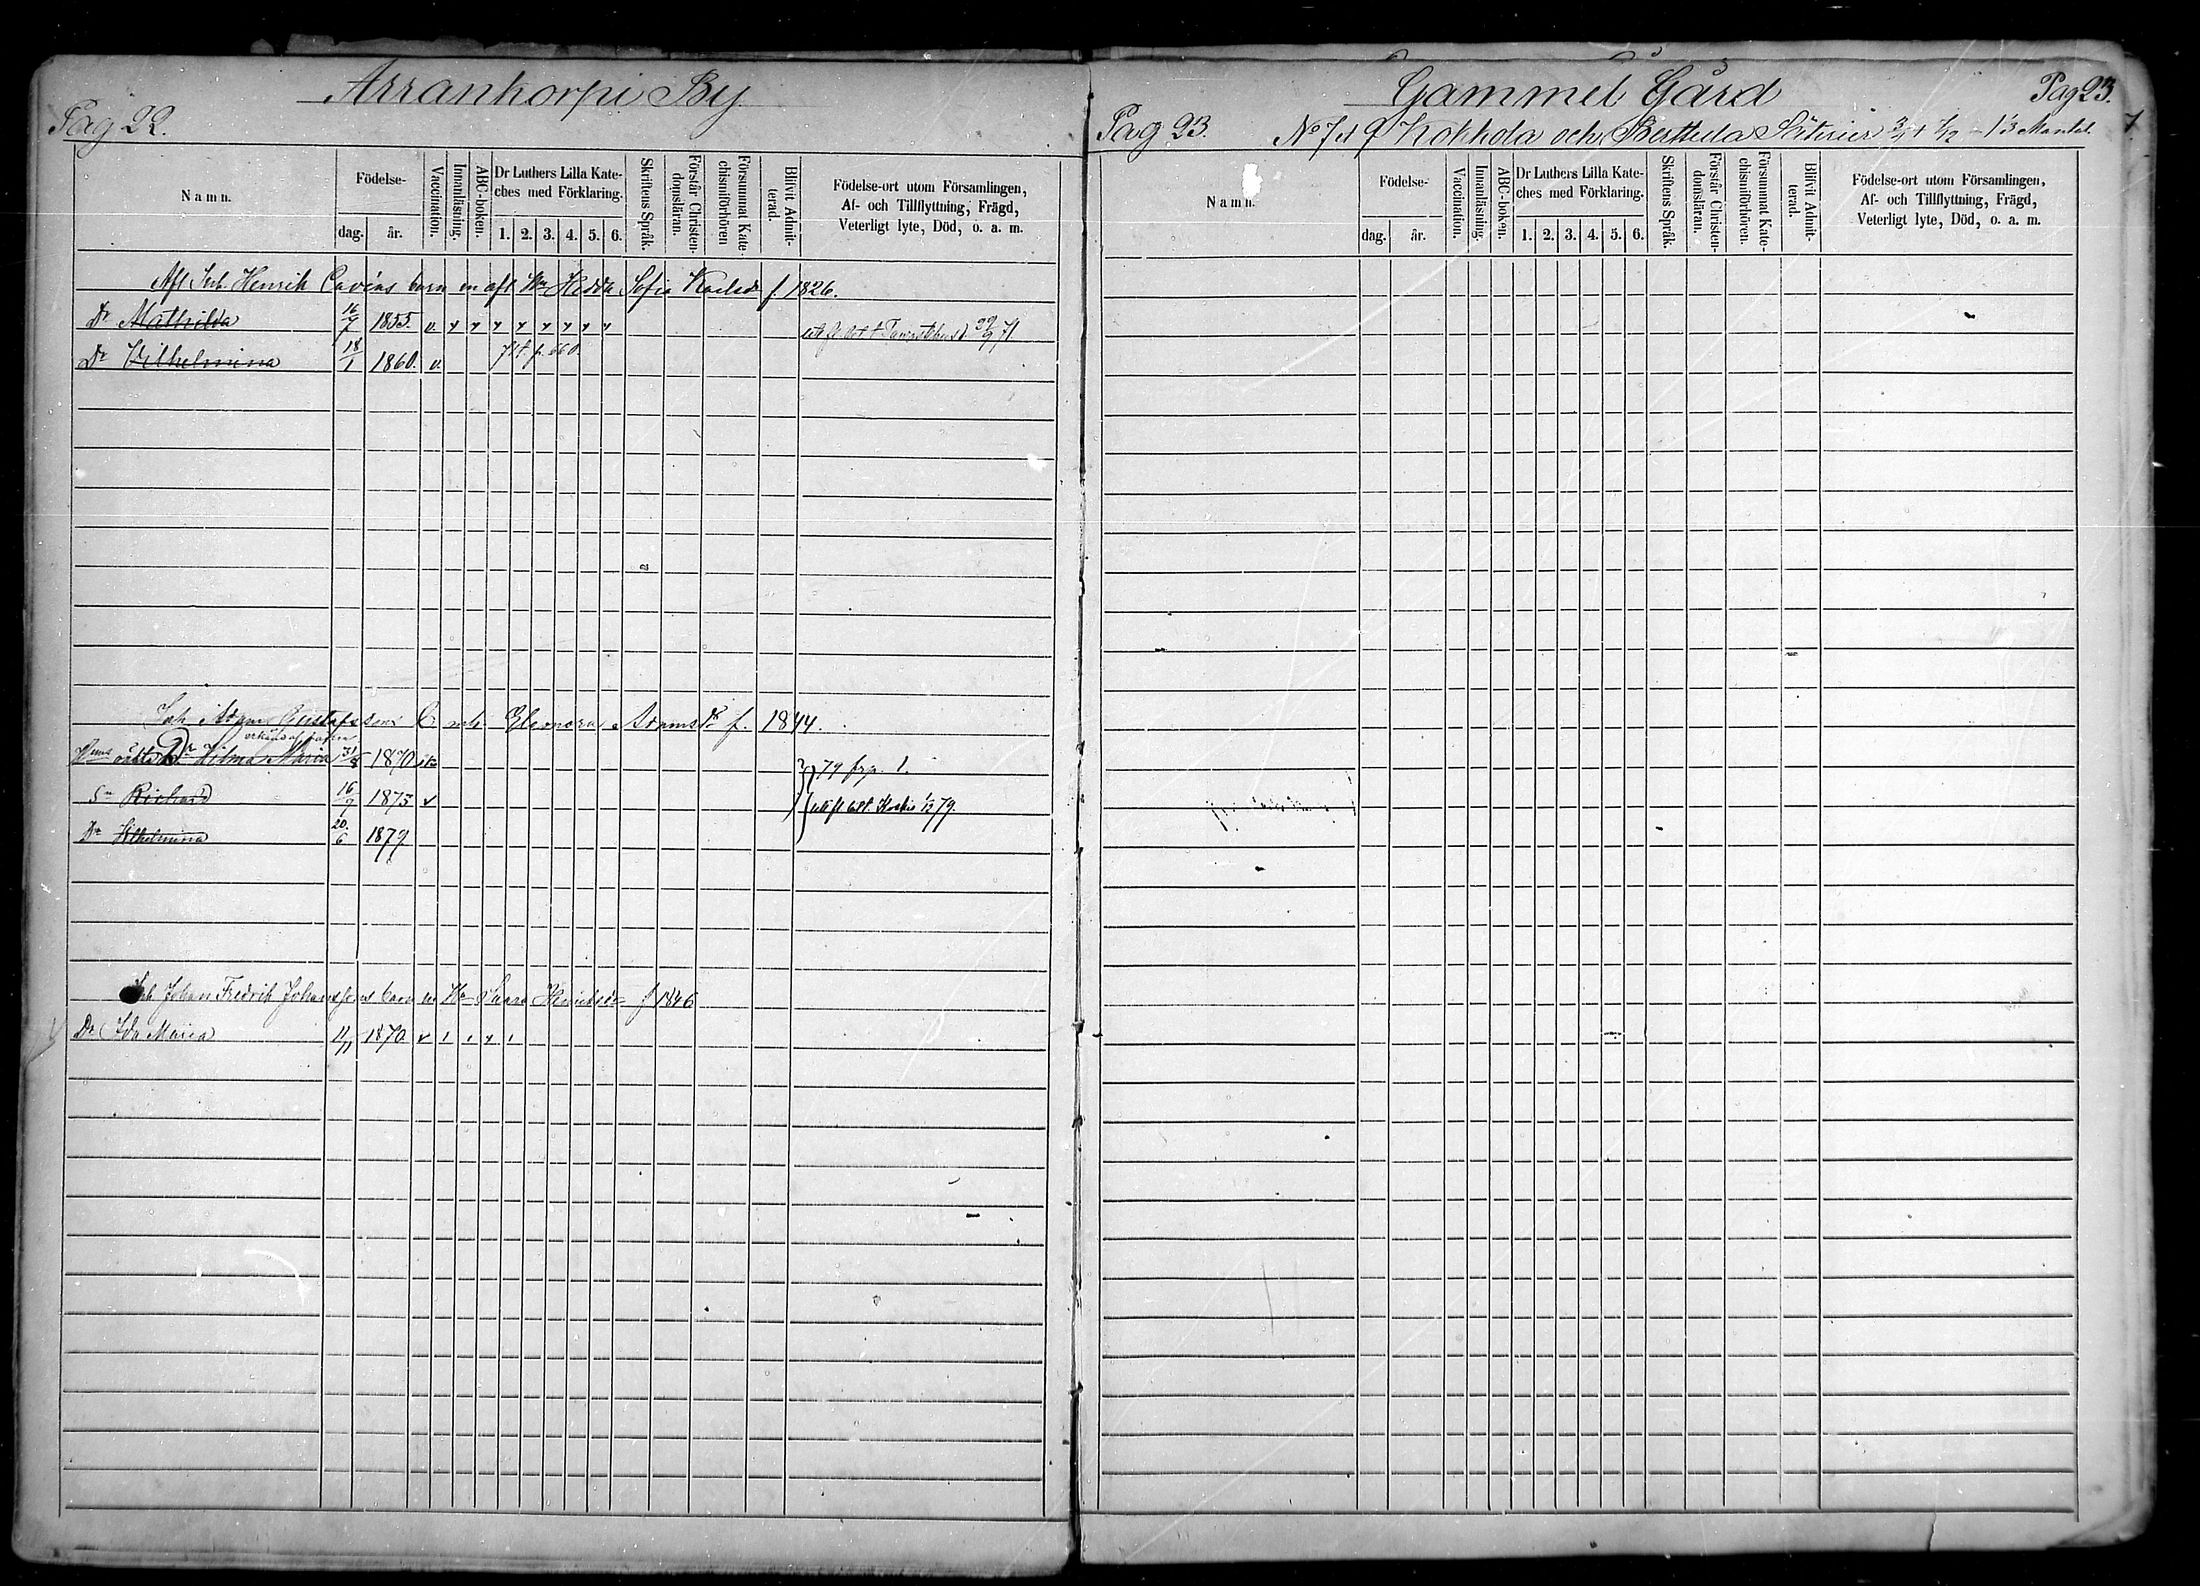 Arrankorpi By
Pag 22.
Namn.
Födelse-
dag.
år.
Vaccination.
Innanläsning.
ABC-boken.
Dr Luthers Lilla Kate-
ches med Förklaring.
1. 2. 3. 4. 5. 6.
Skriftens Språk.
Förstår Christen-
domsläran.
Försummat Kate-
chismiförhören
Blifvit Admit-
terad.
Födelse-ort utom Församlingen,
Af- och Tillflyttning, Frägd,
Veterligt lyte, Död, o. a. m.
Henrik barn Hedda Sofia Karlsdr f. 1826.
Dr Mathilda 16/7 1855. v. 30/9 71
Dr Vilhelmina 18/1 1860. v. 71 p. 660.
Adam Gustafsson Eleonora Adamsdr f. 1844.
Dr Hilma Maria 31/8 1870 79 p. 1.
Sn Richard 16/7 1875 79.
Dr Vilhelmina 20/6 1879
Johan Fredrik Johanssons barn Henriksdr f 1846
Dr Ida Maria 11/11 1870
Gammel Gård
Pag 23.
Pag 23. No 7 & 9 Kokkola och Säterier 3/4 + 7/12 = 1 1/3 Mantal.
Namn.
Födelse-
dag.
år.
Vaccination.
Innanläsning.
ABC-boken.
Dr Luthers Lilla Kate-
ches med Förklaring.
1. 2. 3. 4. 5. 6.
Skriftens Språk.
Förstår Christen-
domsläran.
Försummat Kate-
chismiförhören.
Blifvit Admit-
terad.
Födelse-ort utom Församlingen,
Af- och Tillflyttning, Frägd,
Veterligt lyte, Död, o. a. m.